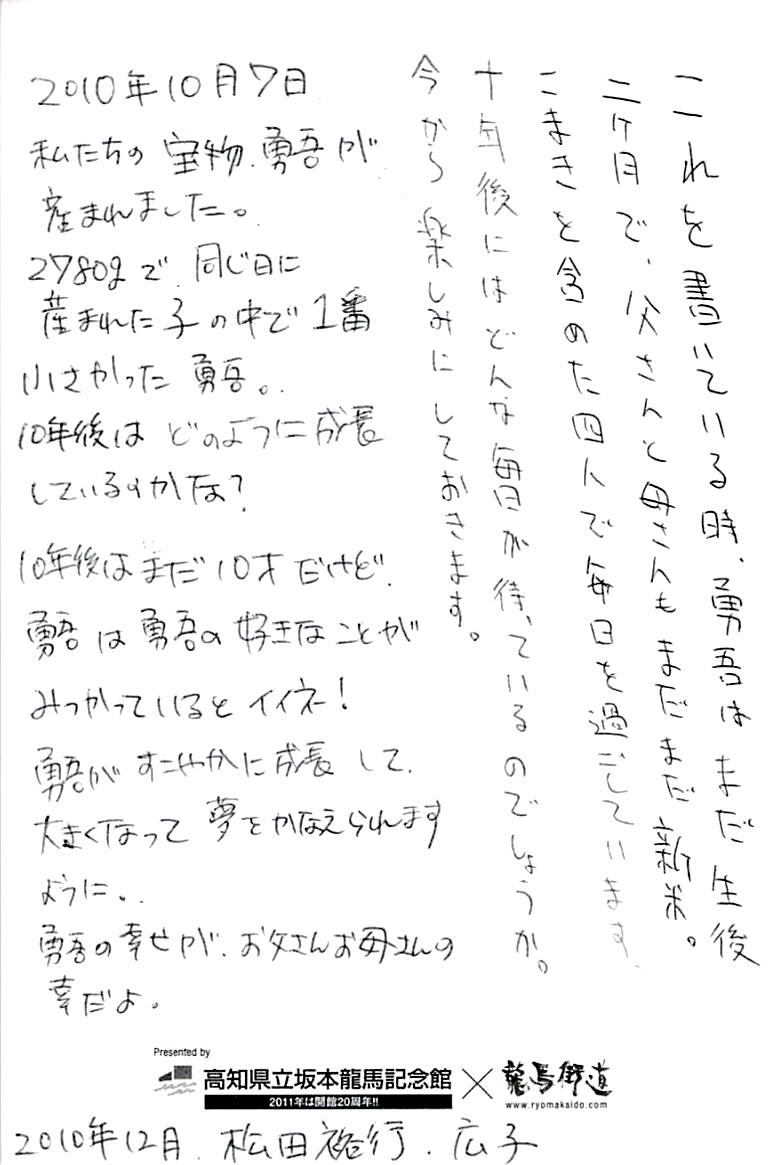 これを書いている時、勇吾はまだ生後
二ヶ月で、父さんと母さんもまだまだ新米。
こまきを含めた四人で毎日を過ごしています。
十年後にはどんな毎日が待っているのでしょうか。
今から楽しみにしておきます。
2010年10月7日
私たちの宝物、勇吾が
産まれました。
2780gで、同じ日に
産まれた子の中で1番
小さかった勇吾。
10年後はどのように成長
しているのかな?
10年後はまだ10才だけど、
勇吾は勇吾の好きなことが
みつかっているとイイネー!
勇吾がすこやかに成長して、
大きくなって夢をかなえられます
ように。
勇吾の幸せが、お父さんお母さんの
幸だよ。
Presented by
高知県立坂本龍馬記念館 × 龍馬街道
2011年は開館20周年!!
www.ryomakaido.com
2010年12月、松田裕行、広子